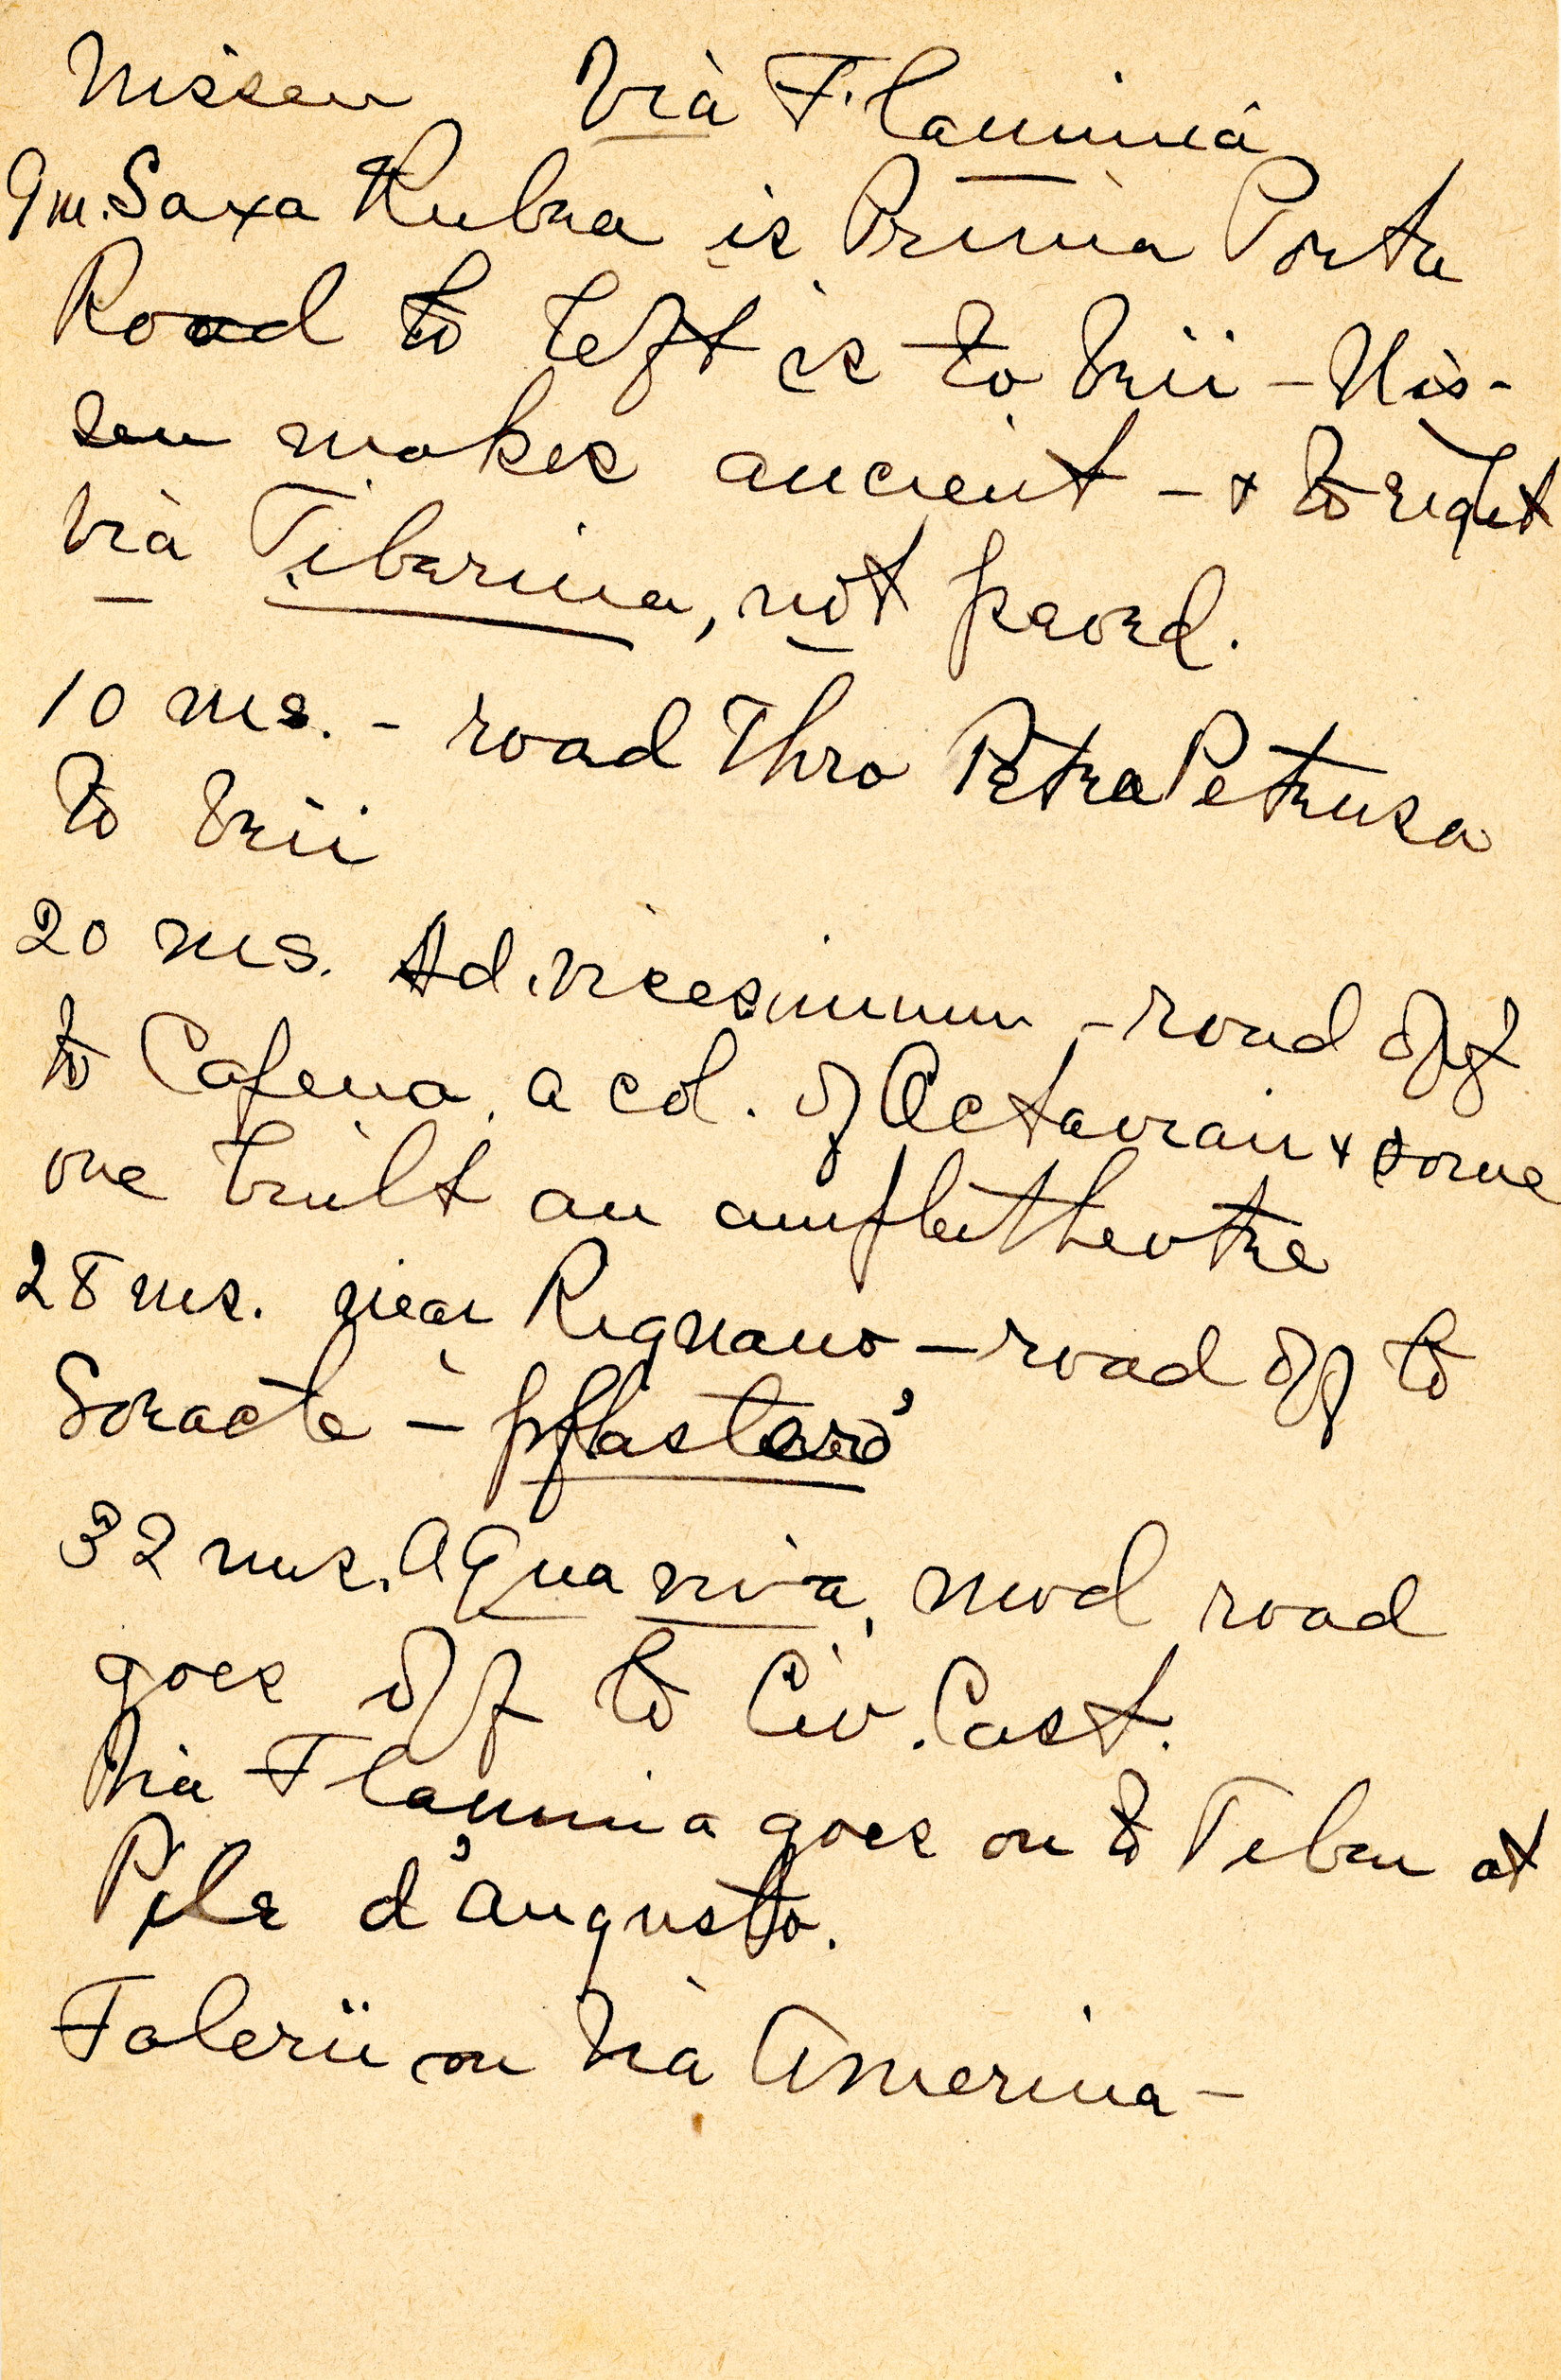 Nissen Via Flaminia
9 m. Saxa Rubra is Prima Porta
Road to left is to Veii - Nis-
sen makes ancient - + to right
Via Tiberina, not paved.
10 ms. - road thro Petra Pertusa
to Veii
20 ms. Ad vicesimum - road off
to Capena, a col. of Octavian + some
one built an amphitheatre
28 ms. near Rignano - road off to
Soracte - 'pflastered'
32 ms. Aqua viva, mod road
goes off to Civ. Cast.
Via Flaminia goes on to Tiber at
Pile d'Augusto.
Falerii on Via Amerina -